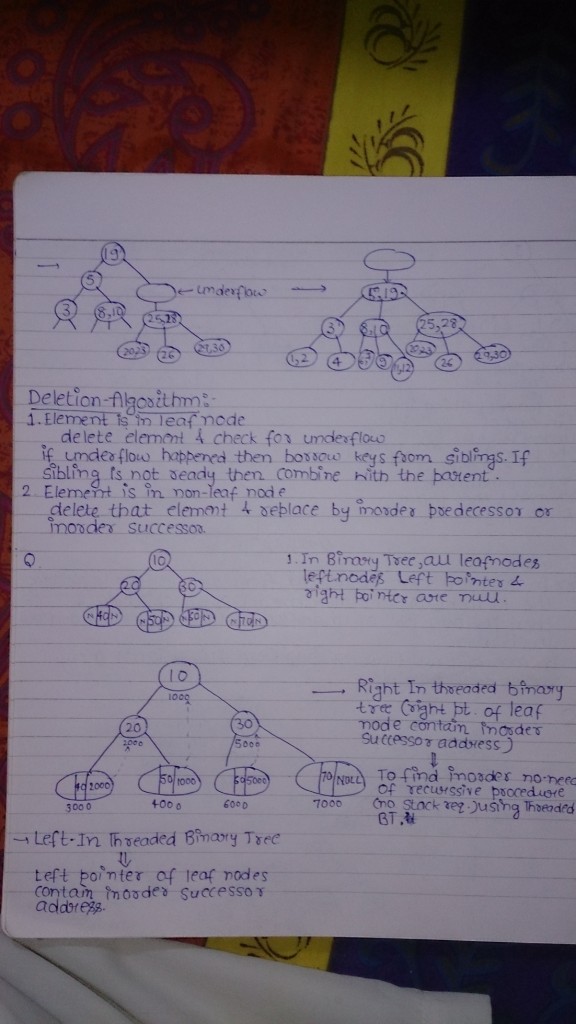 →
19
5
← underflow →
3 8,10 25,28
20,23 26 29,30
5,19
3 8,10 25,28
1,2 4 9 11,12 20,23 26 29,30
Deletion-Algorithm:-
1. Element is in leaf node
delete element & check for underflow
if underflow happened then borrow keys from siblings. If
sibling is not ready then combine with the parent.
2. Element is in non-leaf node
delete that element & replace by inorder predecessor or
inorder successor
Q.
10
20 30
N 40 N N 50 N N 60 N N 70 N
1. In Binary Tree, all leafnodes
left nodes Left pointer &
right pointer are null.
10
1000
20 30
2000 5000
40 2000 50 1000 60 5000 70 NULL
3000 4000 6000 7000
→ Right In threaded binary
tree (right pt. of leaf
node contain inorder
successor address)
⇓
To find inorder no need
of recurssive procedure
(no stack req.) using Threaded
BT.
→ Left-In Threaded Binary Tree
⇓
Left pointer of leaf nodes
contain inorder successor
address.